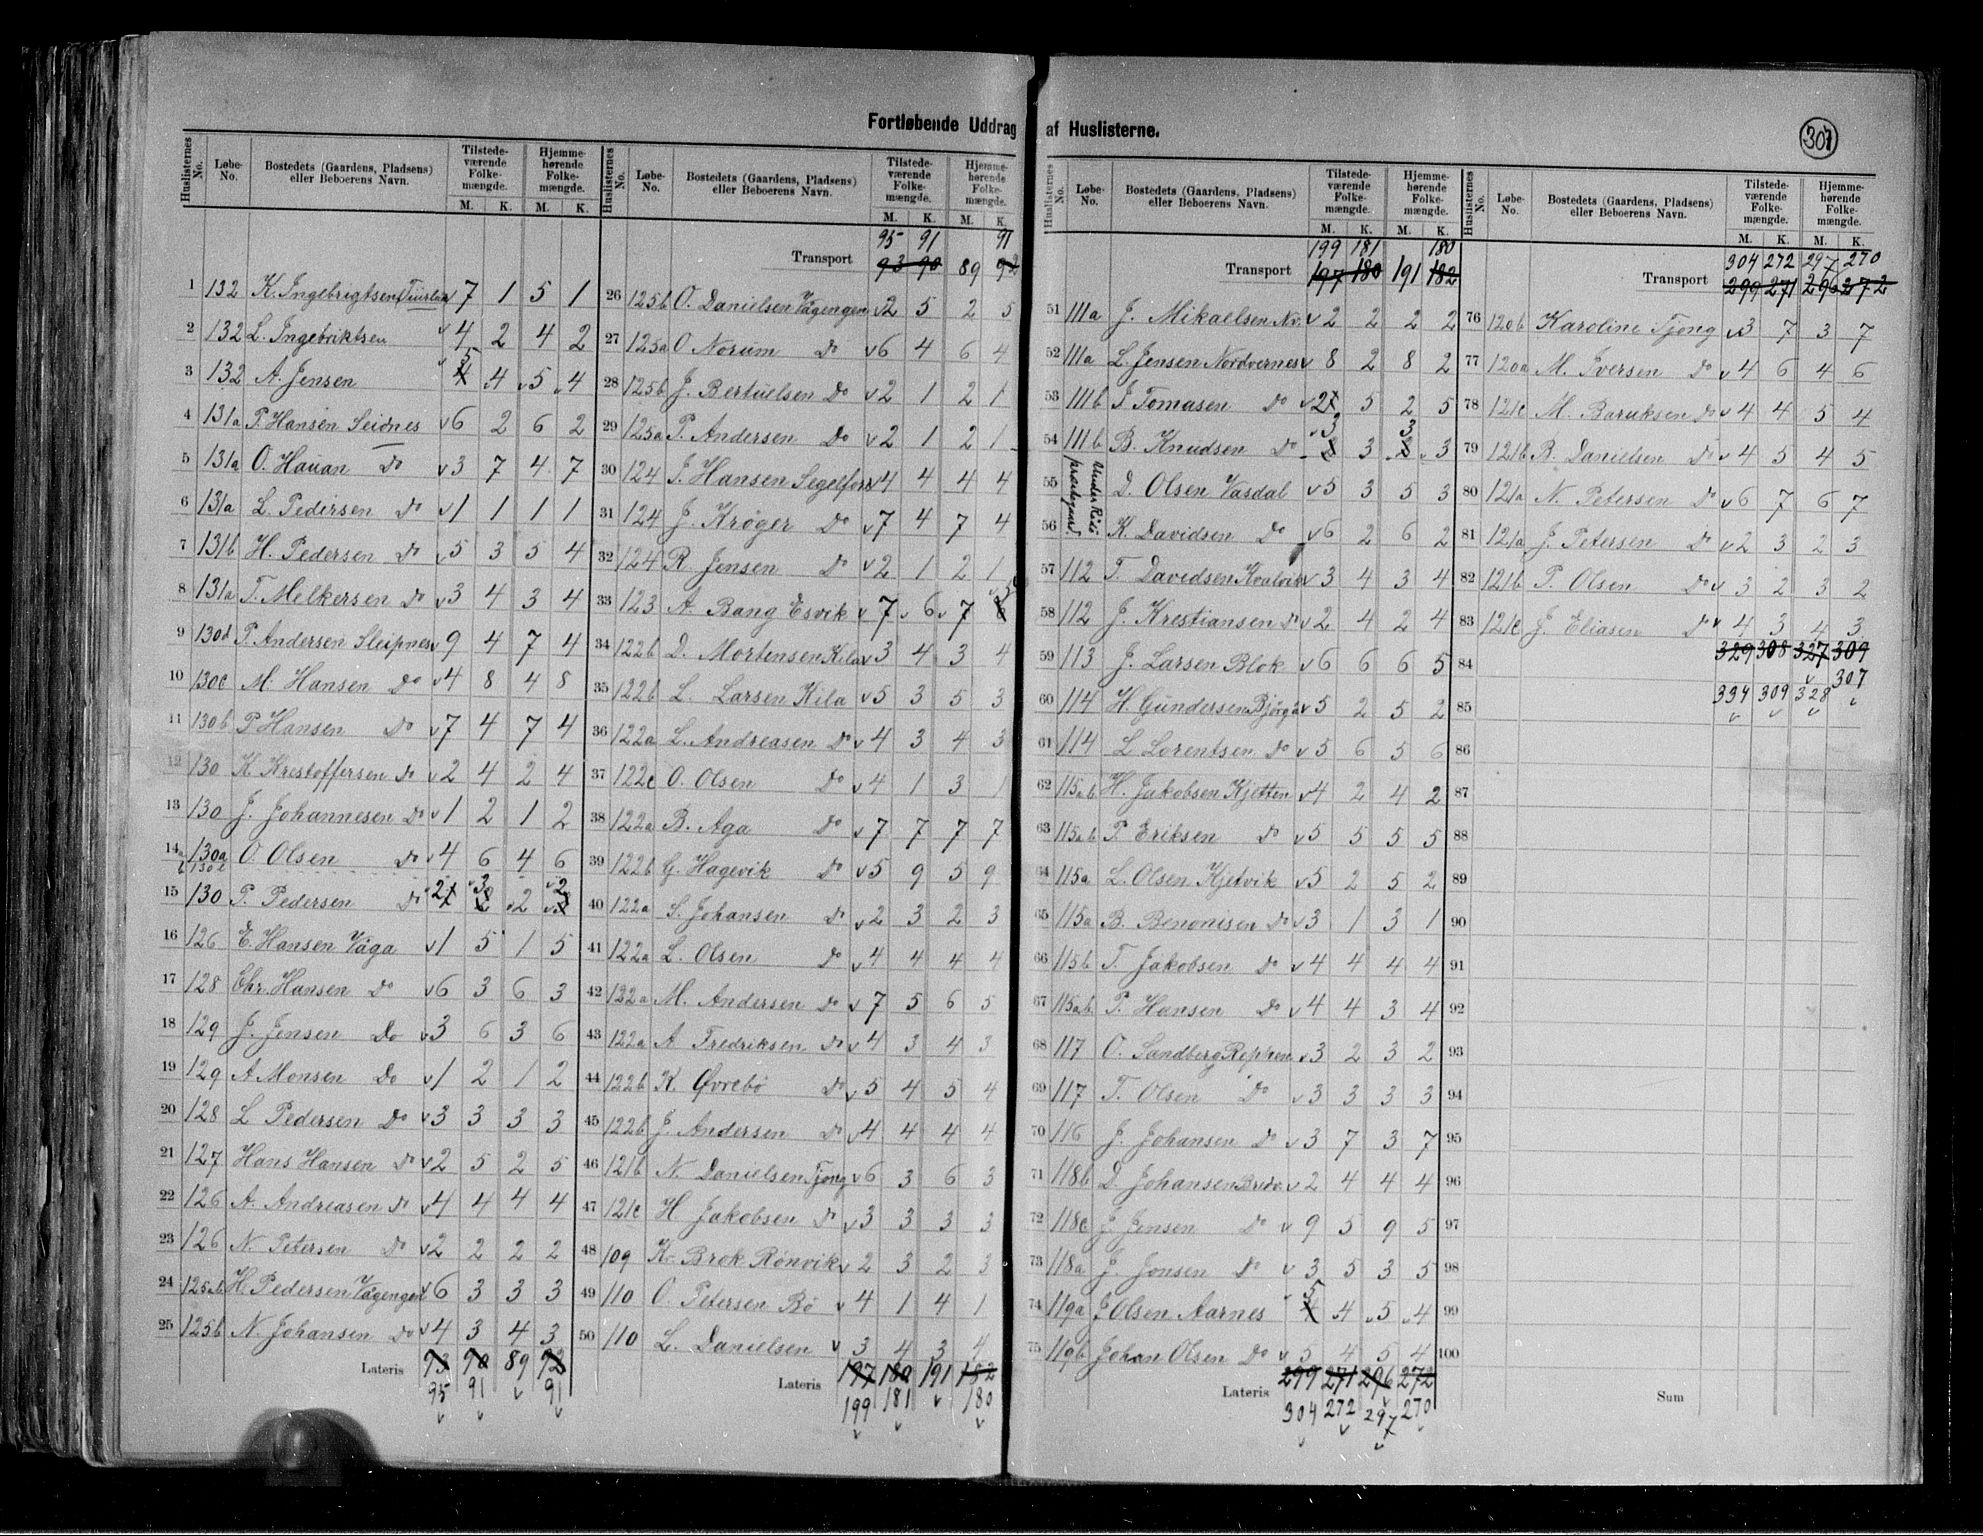 Fortløbende Uddrag af Huslisterne.
307
Huslisternes No. Løbe-No. Bostedets (Gaardens, Pladsens) eller Beboerens Navn. Tilstedeværende Folkemængde. M. K. Hjemmehørende Folkemængde. M. K.
1 132 K. Ingebrigtsen 7 1 5 1
2 132 L. Ingebriktsen v 4 2 4 2
3 132 A. Jensen v 5 4 5 4
4 131a P. Hansen Seidnes v 6 2 6 2
5 131a O. Hauan Do v 3 7 4 7
6 131a L. Pedersen Do v 1 1 1 1
7 131b H. Pedersen Do v 5 3 5 4
8 131a T. Melkersen Do v 3 4 3 4
9 130d P. Andersen Sleipnes v 9 4 7 4
10 130c M. Hansen Do v 4 8 4 8
11 130b P. Hansen Do v 7 4 7 4
12 130 K. Krestoffersen Do v 2 4 2 4
13 130 J. Johannesen Do v 1 2 1 2
14a 130a O. Olsen Do v 4 6 4 6
15 130 P. Pedersen Do v 2 3 2 2
16 126 E. Hansen Våga v 1 5 1 5
17 128 Chr. Hansen Do v 6 3 6 3
18 129 J. Jensen Do v 3 6 3 6
19 129 A Monsen Do v 1 2 1 2
20 128 L Pedersen Do v 3 3 3 3
21 127 Hans Hansen Do v 2 5 2 5
22 126 A. Andreasen Do v 4 4 4 4
23 126 N. Petersen Do v 2 2 2 2
24 125ab H. Pedersen Vågengen v 6 3 3 3
25 125b N. Johansen Do v 4 3 4 3
Lateris 93 90 89 92
95 91 v 91
Huslisternes No. Løbe-No. Bostedets (Gaardens, Pladsens) eller Beboerens Navn. Tilstedeværende Folkemængde. M. K. Hjemmehørende Folkemængde. M. K.
95 91 91
Transport 93 90 89 92
26 125b O. Danielsen Vågengen v 2 5 2 5
27 125a O Norum Do v 6 4 6 4
28 125b J. Bertuelsen Do v 2 1 2 1
29 125a P. Andersen Do v 2 1 2 1
30 124 J. Hansen Segelfors v 4 4 4 4
31 124 J. Krøger Do v 7 4 7 4
32 124 R. Jensen Do v 2 1 2 1
33 123 A. Bang Esvik v 7 v 6 v 7 v 5
34 122b D. Mortensen Kila v 3 4 3 4
35 122b L. Larsen Kila v 5 3 5 3
36 122a L. Andreasen Do v 4 3 4 3
37 122c O. Olsen Do v 4 1 3 1
38 122a B. Aga Do v 7 7 7 7
39 122b G. Hagevik Do v 5 9 5 9
40 122a S. Johansen Do v 2 3 2 3
41 122a L. Olsen Do v 4 4 4 4
42 122a M. Andersen Do v 7 5 6 5
43 122a A Fredriksen Do v 4 3 4 3
44 122b K. Øvrebö Do v 5 4 5 4
45 122b J. Andersen Do v 4 4 4 4
46 121b N. Danielsen Tjong v 6 3 6 3
47 121c H Jakobsen Do v 3 3 3 3
48 109 K. Brok Rönvik v 2 3 2 3
49 110 O. Petersen Bö v 4 1 4 1
50 110 L. Danielsen v 3 4 3 4
Lateris 197 180 191 182
199 181 v 180
Huslisternes No. Løbe-No. Bostedets (Gaardens, Pladsens) eller Beboerens Navn. Tilstedeværende Folkemængde. M. K. Hjemmehørende Folkemængde. M. K.
199 181 180
Transport 197 180 191 182
51 111a J. Mikaelsen Nv. v 2 2 2 2
52 111a L. Jensen Nordvernes v 8 2 8 2
53 111b J Tomasen Do v 2 5 2 5
54 111b B. Knudsen Do v 3 3 3 3
Under Rödö præstegaard
55 D. Olsen Vasdal v 5 3 5 3
56 K. Davidsen Do v 6 2 6 2
57 112 T. Davidsen Kvalvik v 3 4 3 4
58 112 J. Krestiansen Do v 2 4 2 4
59 113 J. Larsen Blok v 6 6 6 5
60 114 H. Gundersen v 5 2 5 2
61 114 L Lorentsen Do v 5 6 5 6
62 115ab H. Jakobsen Kjetten v 4 2 4 2
63 115ab P. Eriksen Do v 5 5 5 5
64 115a L. Olsen Kjetvik v 5 2 5 2
65 115a B. Benonisen Do v 3 1 3 1
66 115b T. Jakobsen Do v 4 4 4 4
67 115ab P. Hansen Do v 4 4 3 4
68 117 O. Sandberg Reppen v 3 2 3 2
69 117 T. Olsen Do v 3 3 3 3
70 116 J. Johansen Do v 3 7 3 7
71 118b D. Johansen v 2 4 4 4
72 118c J. Jensen Do v 9 5 9 5
73 118a J. Jonsen Do v 3 5 3 5
74 119a J. Olsen Aarnes v 5 4 5 4
75 119b Johan Olsen Do v 5 4 5 4
Lateris 299 271 296 272
304 272 297 270
Huslisternes No. Løbe-No. Bostedets (Gaardens, Pladsens) eller Beboerens Navn. Tilstedeværende Folkemængde. M. K. Hjemmehørende Folkemængde. M. K.
304 272 297 270
Transport 299 271 296 272
76 120b Karoline Tjong v 3 7 3 7
77 120a M. Iversen Do v 4 6 4 6
78 121c M. Baruksen Do v 4 4 5 4
79 121b B. Danielsen Do v 4 5 4 5
80 121a N. Petersen Do v 6 7 6 7
81 121a J. Petersen Do v 2 3 2 3
82 121b P. Olsen Do v 3 2 3 2
83 121c J. Eliasen Do v 4 3 4 3
84 329 308 327 309
307
85 334 309 328
86
87
88
89
90
91
92
93
94
95
96
97
98
99
100
Sum